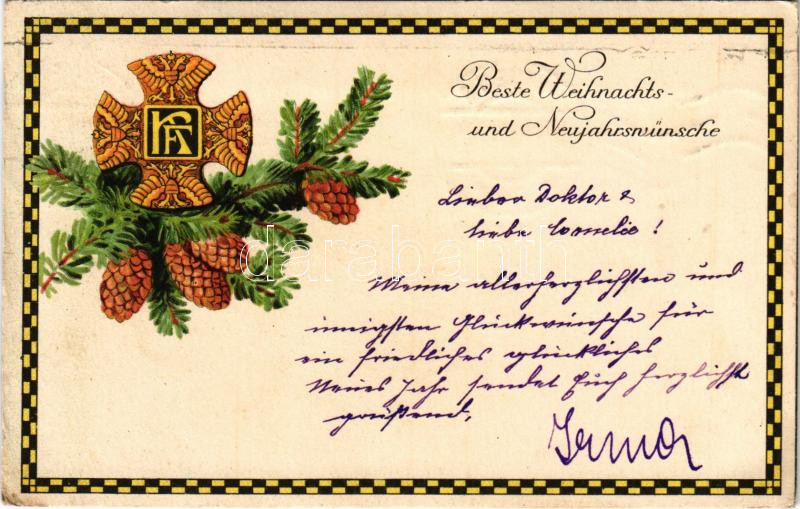 Beste Weihnachts-
und Neujahrswünsche
KFA
Lieber Doktor &
liebe Cornelie!
Meine allerherzlichsten und
innigsten Glückwünsche für
ein friedliches glückliches
Neues Jahr sendet Euch herzlichst
grüßend,
Irma
darabanth